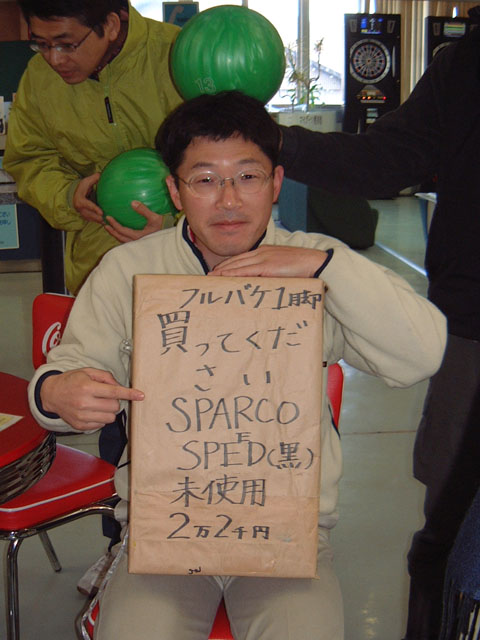 フルバケ1脚
買ってくだ
さい
SPARCO
E
SPED(黒)
未使用
2万2千円